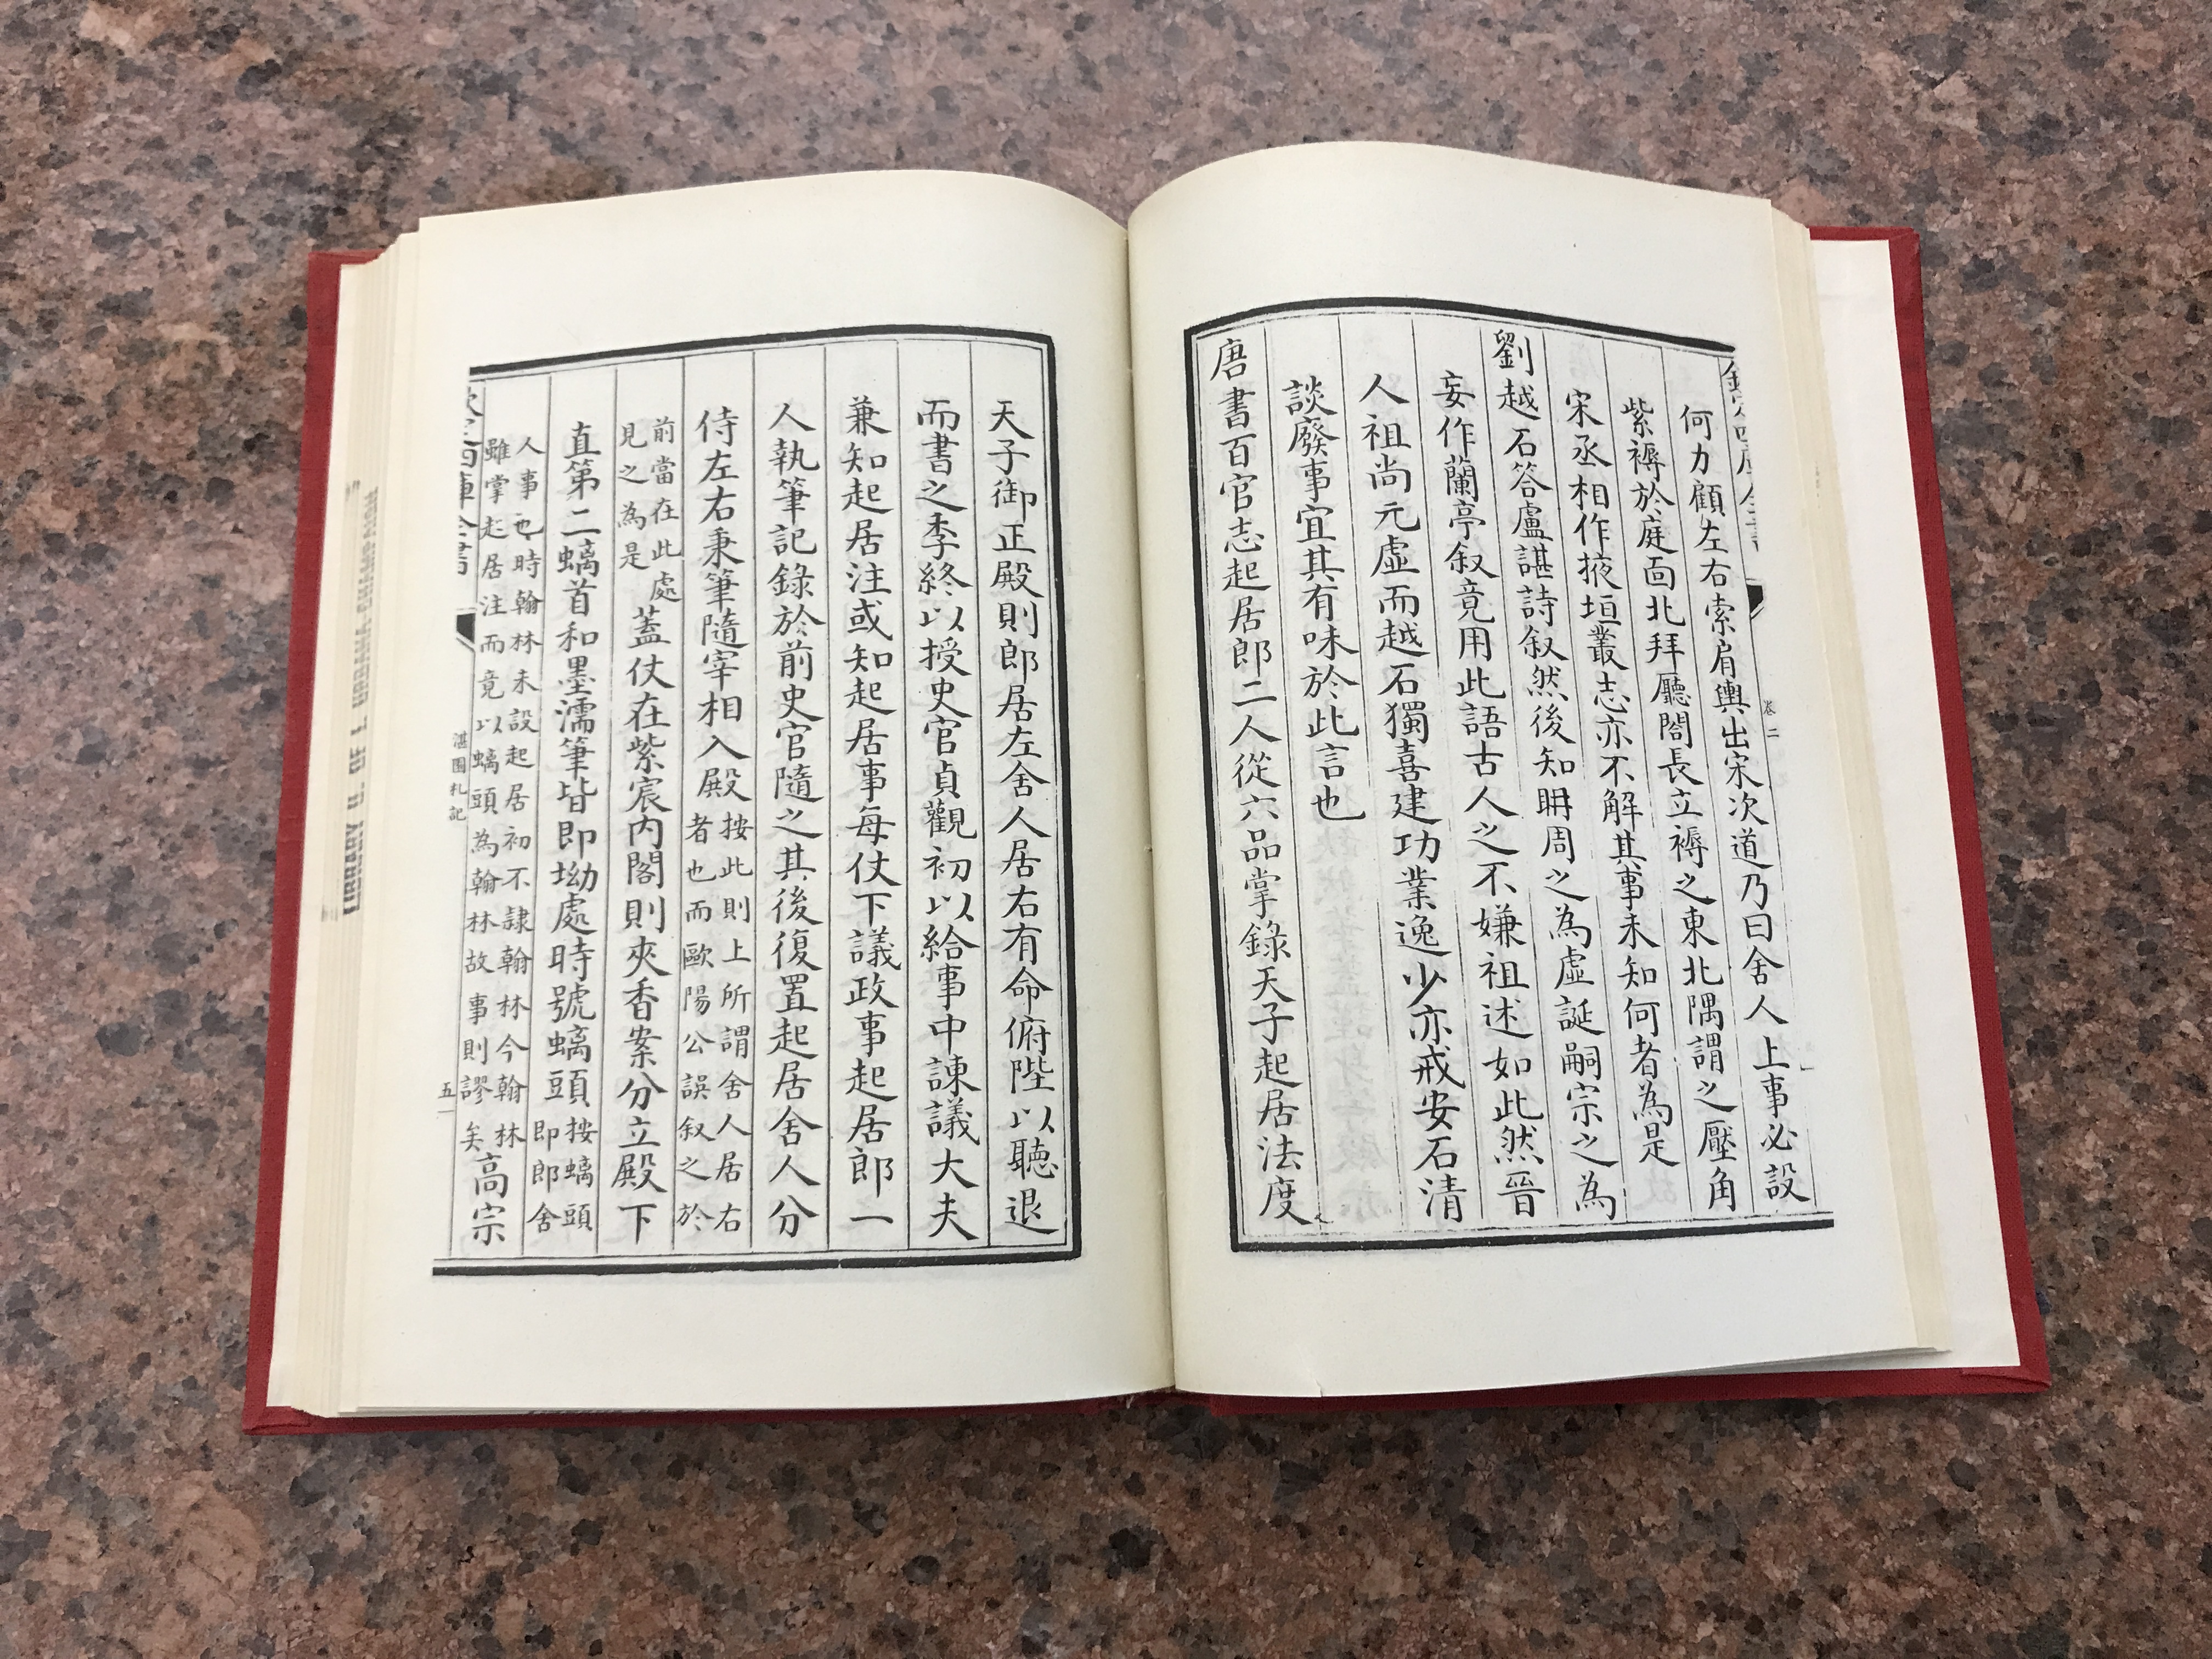 欽定四庫全書
卷二
何力顧左右索肩輿出宋次道乃曰舍人上事必設
紫褥於庭面北拜廳閤長立褥之東北隅謂之壓角
宋丞相作掖垣叢志亦不解其事未知何者為是
劉越石答盧諶詩叙然後知聃周之為虛誕嗣宗之為
妄作蘭亭叙竟用此語古人之不嫌祖述如此然晉
人祖尚元虛而越石獨喜建功業逸少亦戒安石清
談廢事宜其有味於此言也
唐書百官志起居郎二人從六品掌錄天子起居法度
天子御正殿則郎居左舍人居右有命俯陛以聽退
而書之季終以授史官貞觀初以給事中諫議大夫
兼知起居注或知起居事每仗下議政事起居郎一
人執筆記錄於前史官隨之其後復置起居舍人分
侍左右秉筆隨宰相入殿按此則上所謂舍人居右者也而歐陽公誤叙之於
前當在此處見之為是蓋仗在紫宸內閣則夾香案分立殿下
直第二螭首和墨濡筆皆即坳處時號螭頭按螭頭即郎舍
人事也時翰林未設起居初不隸翰林今翰林雖掌起居注而竟以螭頭為翰林故事則謬矣高宗
欽定四庫全書
湛園札記
五